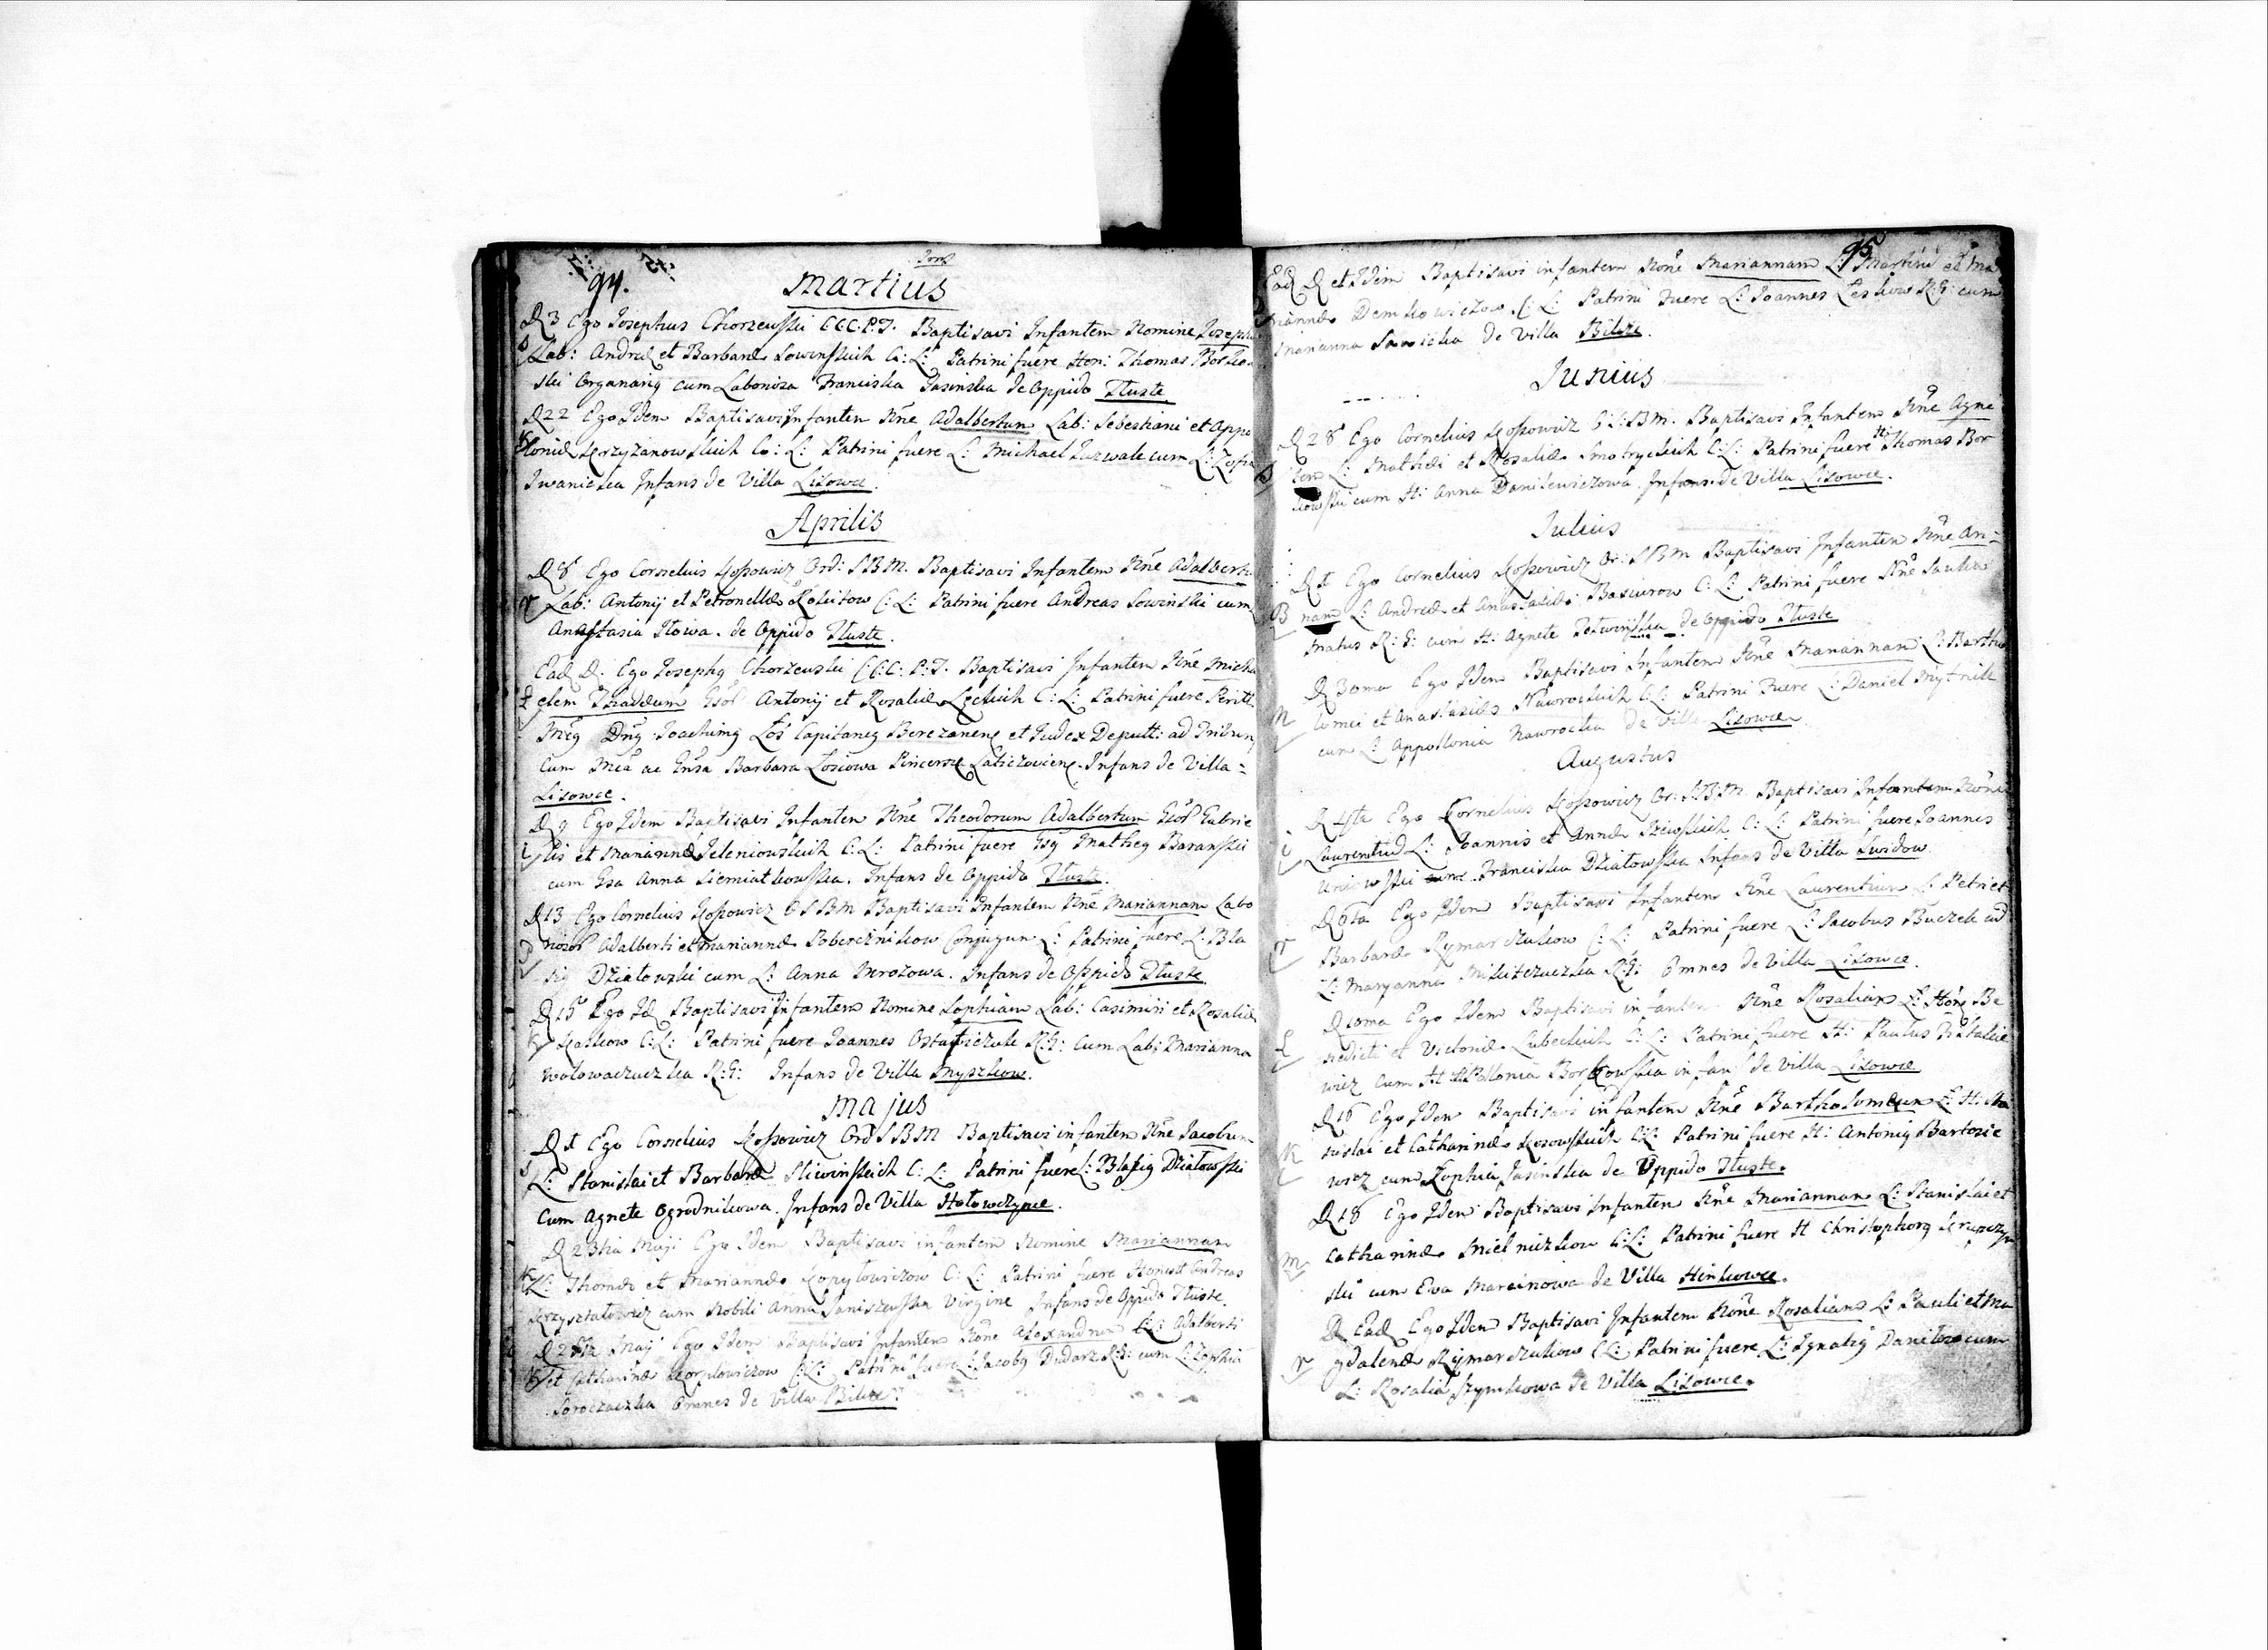 94.
Martius
D 3 Ego Josephus Chorzewski C.C.C.P.T. Baptisavi Infantem Nomine Joseph
Lab: Andreæ et Barbaræ Sowinskich C: L: Patrini fuere Hon: Thomas Borko
ski Organariq cum Laboriosa Franciska Jasinska de Oppido Tłuste
D 22 Ego Idem Baptisavi Infantem Nne Adalbertum Lab: Sebestiani et Appo
loniæ Krzyżanowskich C: L: Patrini fuere L: Michael cum L: Zofia
Iwanicka Infans de Villa Lisowce.
Aprilis
D 8 Ego Cornelius Kossowicz Ord: S B M. Baptisavi Infantem Nne Adalbert
Lab: Antonij et Petronellæ C: L: Patrini fuere Andreas Sowinski cum
Anastasia de Oppido Tłuste.
Ead D. Ego Josephq Chorzewski C.C.C. P. T. Baptisavi Infantem Nne Micha
elem Thaddeum Antonij et Rosaliæ Łęckich C: L: Patrini fuere
Dnq Joachimq Łoś Capitaneq et Judex Deputt: ad Tribun
Cum ac Barbara Łosiowa Infans de Villa =
Lisowce.
D 9 Ego Idem Baptisavi Infantem Nne Theodorum Adalbertum Gabrie
lis et Mariannæ Jeleniowskich C: L: Patrini fuere Matheq Baranski
cum Anna Siemiatkowska. Infans de Oppido Tłuste.
D 13 Ego Cornelius Kossowicz O S B M Baptisavi Infantem Nne Mariannam Labo
Adalberti et Mariannæ Pobereżnikow Conjugum L: Patrini fuere L: Bla
siq Działowski cum L: Anna Mrozowa. Infans de Oppido Tłuste
D 15 Ego Id Baptisavi Infantem Nomine Sophiam Lab: Casimiri et Rosaliæ
C: L: Patrini fuere Joannes R: G: Cum Lab: Marianna
Wołowaczuczka R: G: Infans de Villa Myszkow.
Majus
D 1 Ego Cornelius Kossowicz Ord S B M Baptisavi infantem Nne Jacobum
L: Stanislai et Barbaræ Sliwinskich C: L: Patrini fuere L: Blasiq Działowski
Cum Agnete Ogrodnikowa. Infans de Villa Hołowczynce.
D 23tia Maji Ego Idem Baptisavi infantem Nomine Mariannam
L: Thomæ et Mariannæ Kopytowiczow C: L: Patrini fuere Honest Andreas
Krzyształowicz cum Nobili Anna Janiszewska Virgine Infans de Oppido Tłuste.
Maij Ego Idem Baptisavi Infantem Nne Alexandrum L: Adalberti
et Catharinæ C: L: Patrini fuere L: Jacobq Dudarz R: G: cum L: Zophia
Omnes de Villa Bilcze.
95
Ead D et Idem Baptisavi infantem Nne Mariannam L: Martini et Ma
riannæ Demkowiczow C: L: Patrini Fuere L: Joannes Leskow R: G: cum
Marianna Sawicka de Villa Bilcze.
Junius
D 28 Ego Cornelius Kossowicz O: S: B M. Baptisavi Infantem Nne Agne
tem L: Mathæi et Rosaliæ Smotryckich C: L: Patrini fuere H: Thomas Bor
kowski cum H: Anna Danilewiczowa. Infans de Villa Lisowce.
Julius
D 1 Ego Cornelius Kossowicz Or: S B M Baptisavi Infantem Nne An=
nam L: Andreæ et Anastasiæ Basiurow C: L: Patrini fuere
R: G: cum H: Agnete de Oppido Tłuste
D 30ma Ego Idem Baptisavi Infantem Nne Mariannam L: Bartho
lomei et Anastasiæ Nawrockich C: L: Patrini Fuere L: Daniel
cum L: Appollonia Nawrocka de Villa Lisowce.
Augustus
D Ego Cornelius Kossowicz Or: S: B: M. Baptisavi Infantem Nomi
Laurentiu L: Joannis et Annæ C: L: Patrini fuere Joannes
cum Franciska Działowska Infans de Villa Swidow.
D 6ta Ego Idem Baptisavi Infantem Nne Laurentium L: Petri et
Barbaræ Rymarczukow C: L: Patrini fuere L: Jacobus Buczek cu
L: Maryanna R: G: Omnes de Villa Lisowce.
D 10ma Ego Idem Baptisavi infantem Nne Rosaliam L: Be
nedicti et Victoriæ Lubeckich C: L: Patrini fuere H: Paulus
wicz Cum H: Apollonia Borkowska infans de Villa Lisowce
D 16 Ego Idem Baptisavi infantem Nne Bartholomæum L: H: Sta
nislai et Catharinæ Kosowskich C: L: Patrini fuere H: Antoniq Bartosie
wicz cum Zophia Jasinska de Oppido Tłuste.
D 18 Ego Idem Baptisavi Infantem Nne Mariannam L: Stanislai et
Catharinæ Mielniczkow C: L: Patrini fuere H Christophorq
ski cum Eva Marcinowa de Villa Hinkowce.
D Ead Ego Idem Baptisavi Infantem Nne Rosaliam L: Pauli et Ma
gdalenæ Rymarczukow C: L: Patrini fuere L: Ignatiq cum
L: Rosalia Szymkowa de Villa Lisowce.